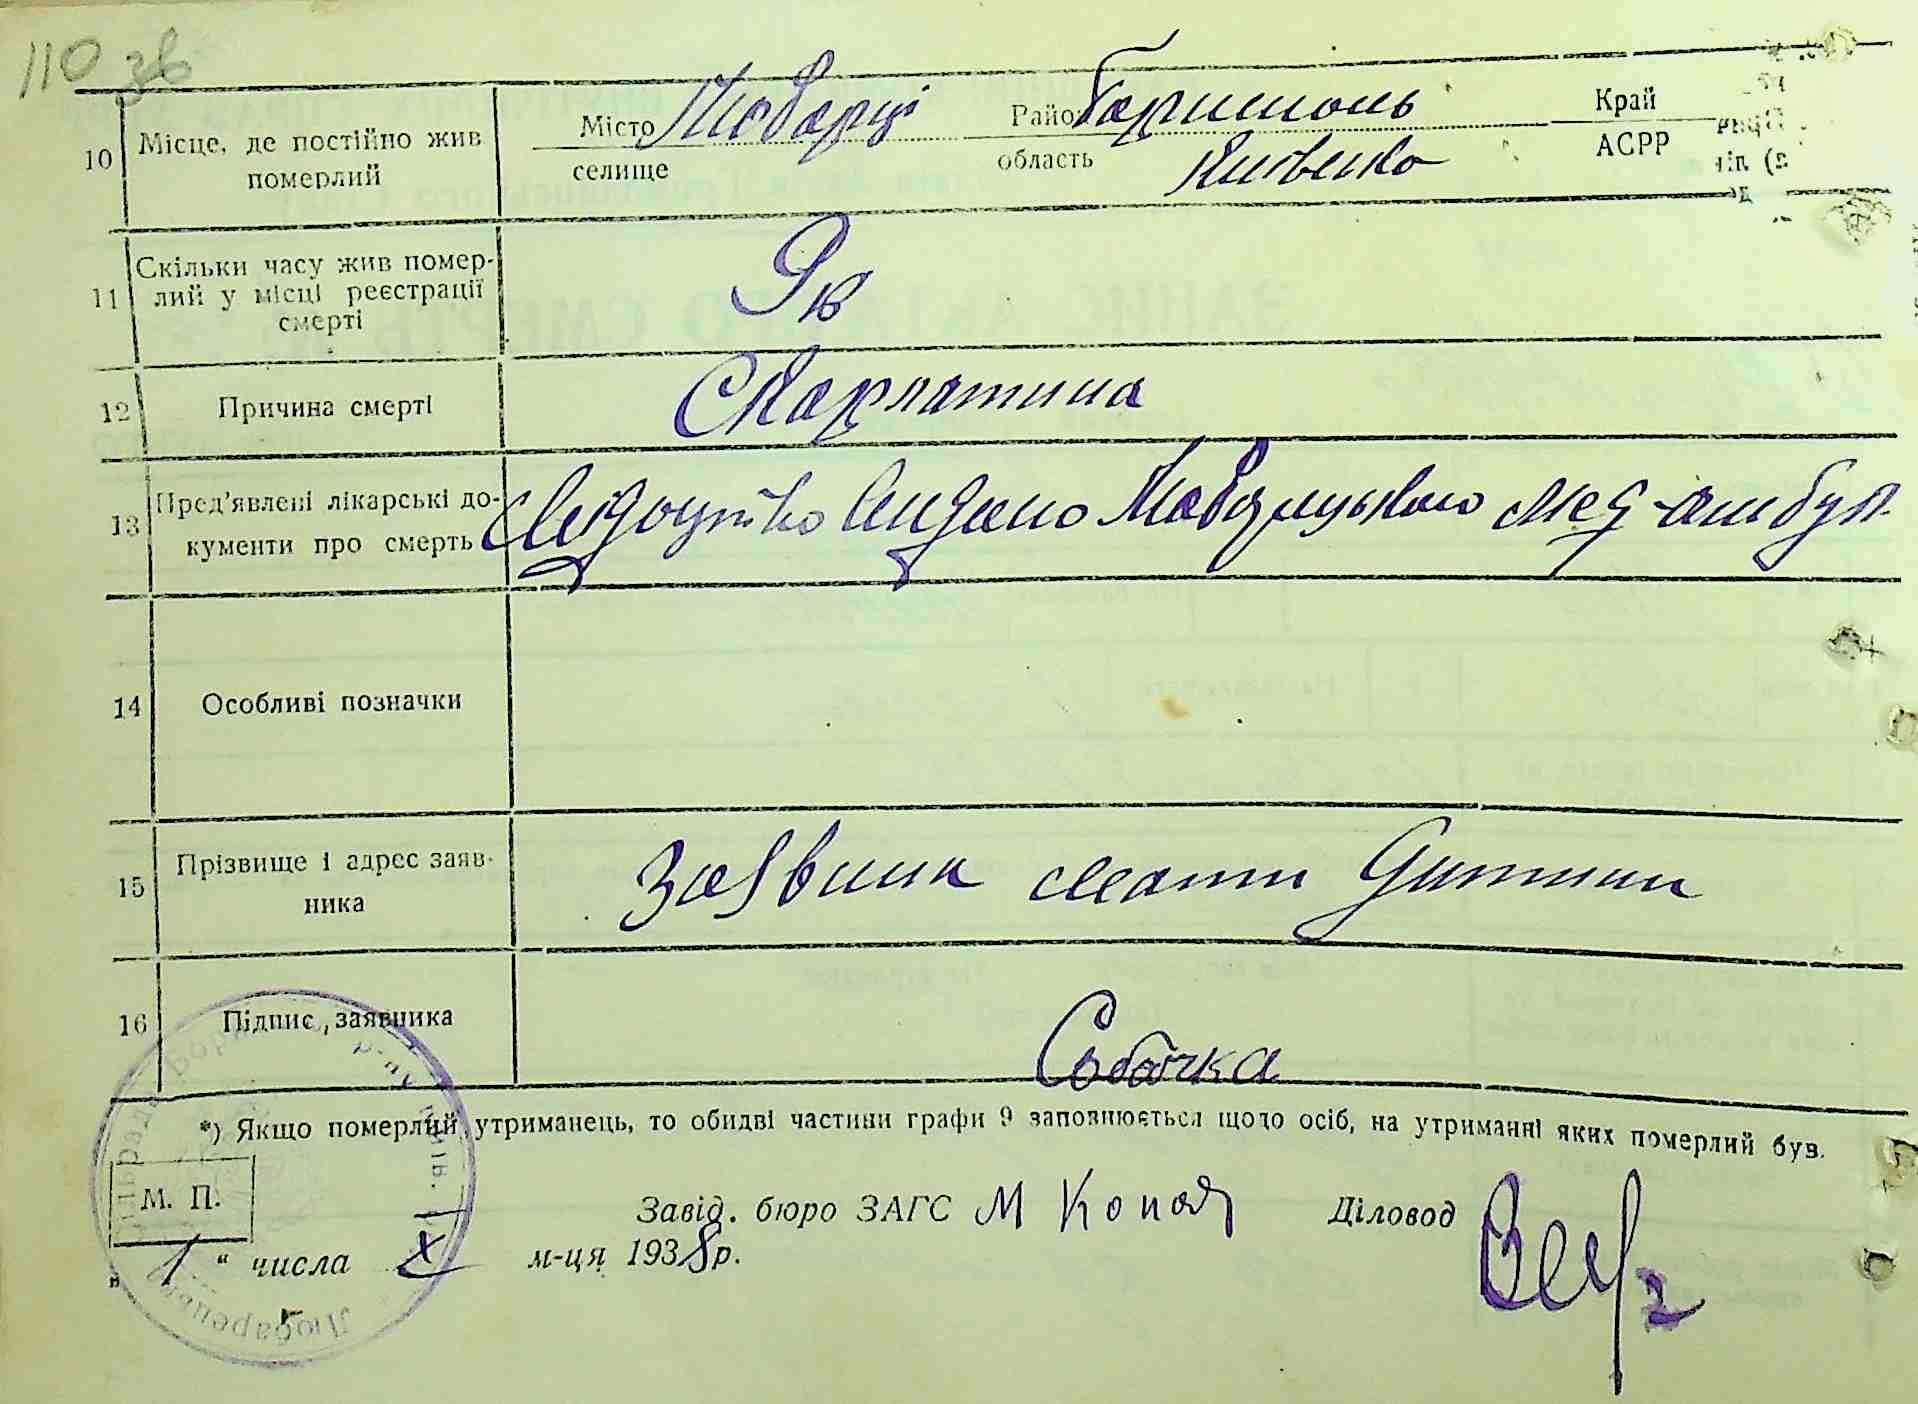 110 зв
10 Місце, де постійно жив померлий Місто селище Любарці Район область Баришполь Київсько Край АСРР
11 Скільки часу жив померлий у місці реєстрації смерті 9 м
12 Причина смерті Скарлатина
13 Пред'явлені лікарські документи про смерть видано мед-амбул
14 Особливі позначки
15 Прізвище і адрес заявника Заявила мати дитини
16 Підпис заявника Собачка
*) Якщо померлий утриманець, то обидві частини графи 9 заповнюється щодо осіб, на утриманні яких померлий був.
М. П. Завід. бюро ЗАГС М Копай Діловод
„ 1 “ числа X м-ця 1938 р.